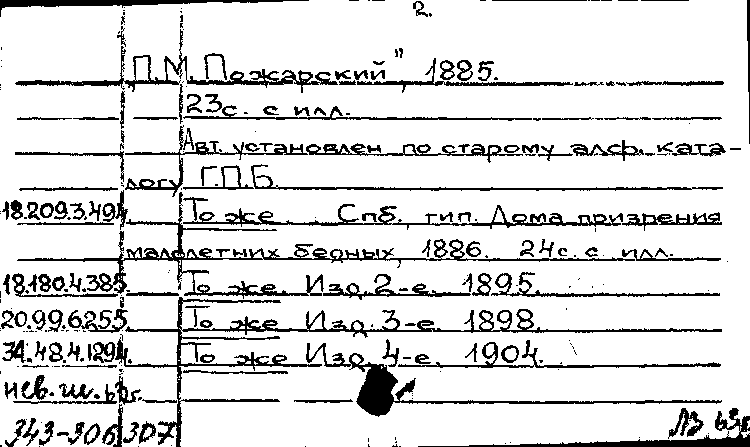 2.
„П.М. Пожарский", 1885.
23с. с илл.
Авт. установлен по старому алф. ката-
логу Г.П.Б.
18.209.3.494. То же. Спб., тип. Дома призрения
малолетних бедных, 1886. 24с. с илл.
18.180.4.385. То же. Изд. 2-е. 1895.
20.99.6.255. То же. Изд. 3-е. 1898.
34.48.4.1294. То же. Изд. 4-е. 1904.
нев. ш.
343-306 307 ЛЗ 63г